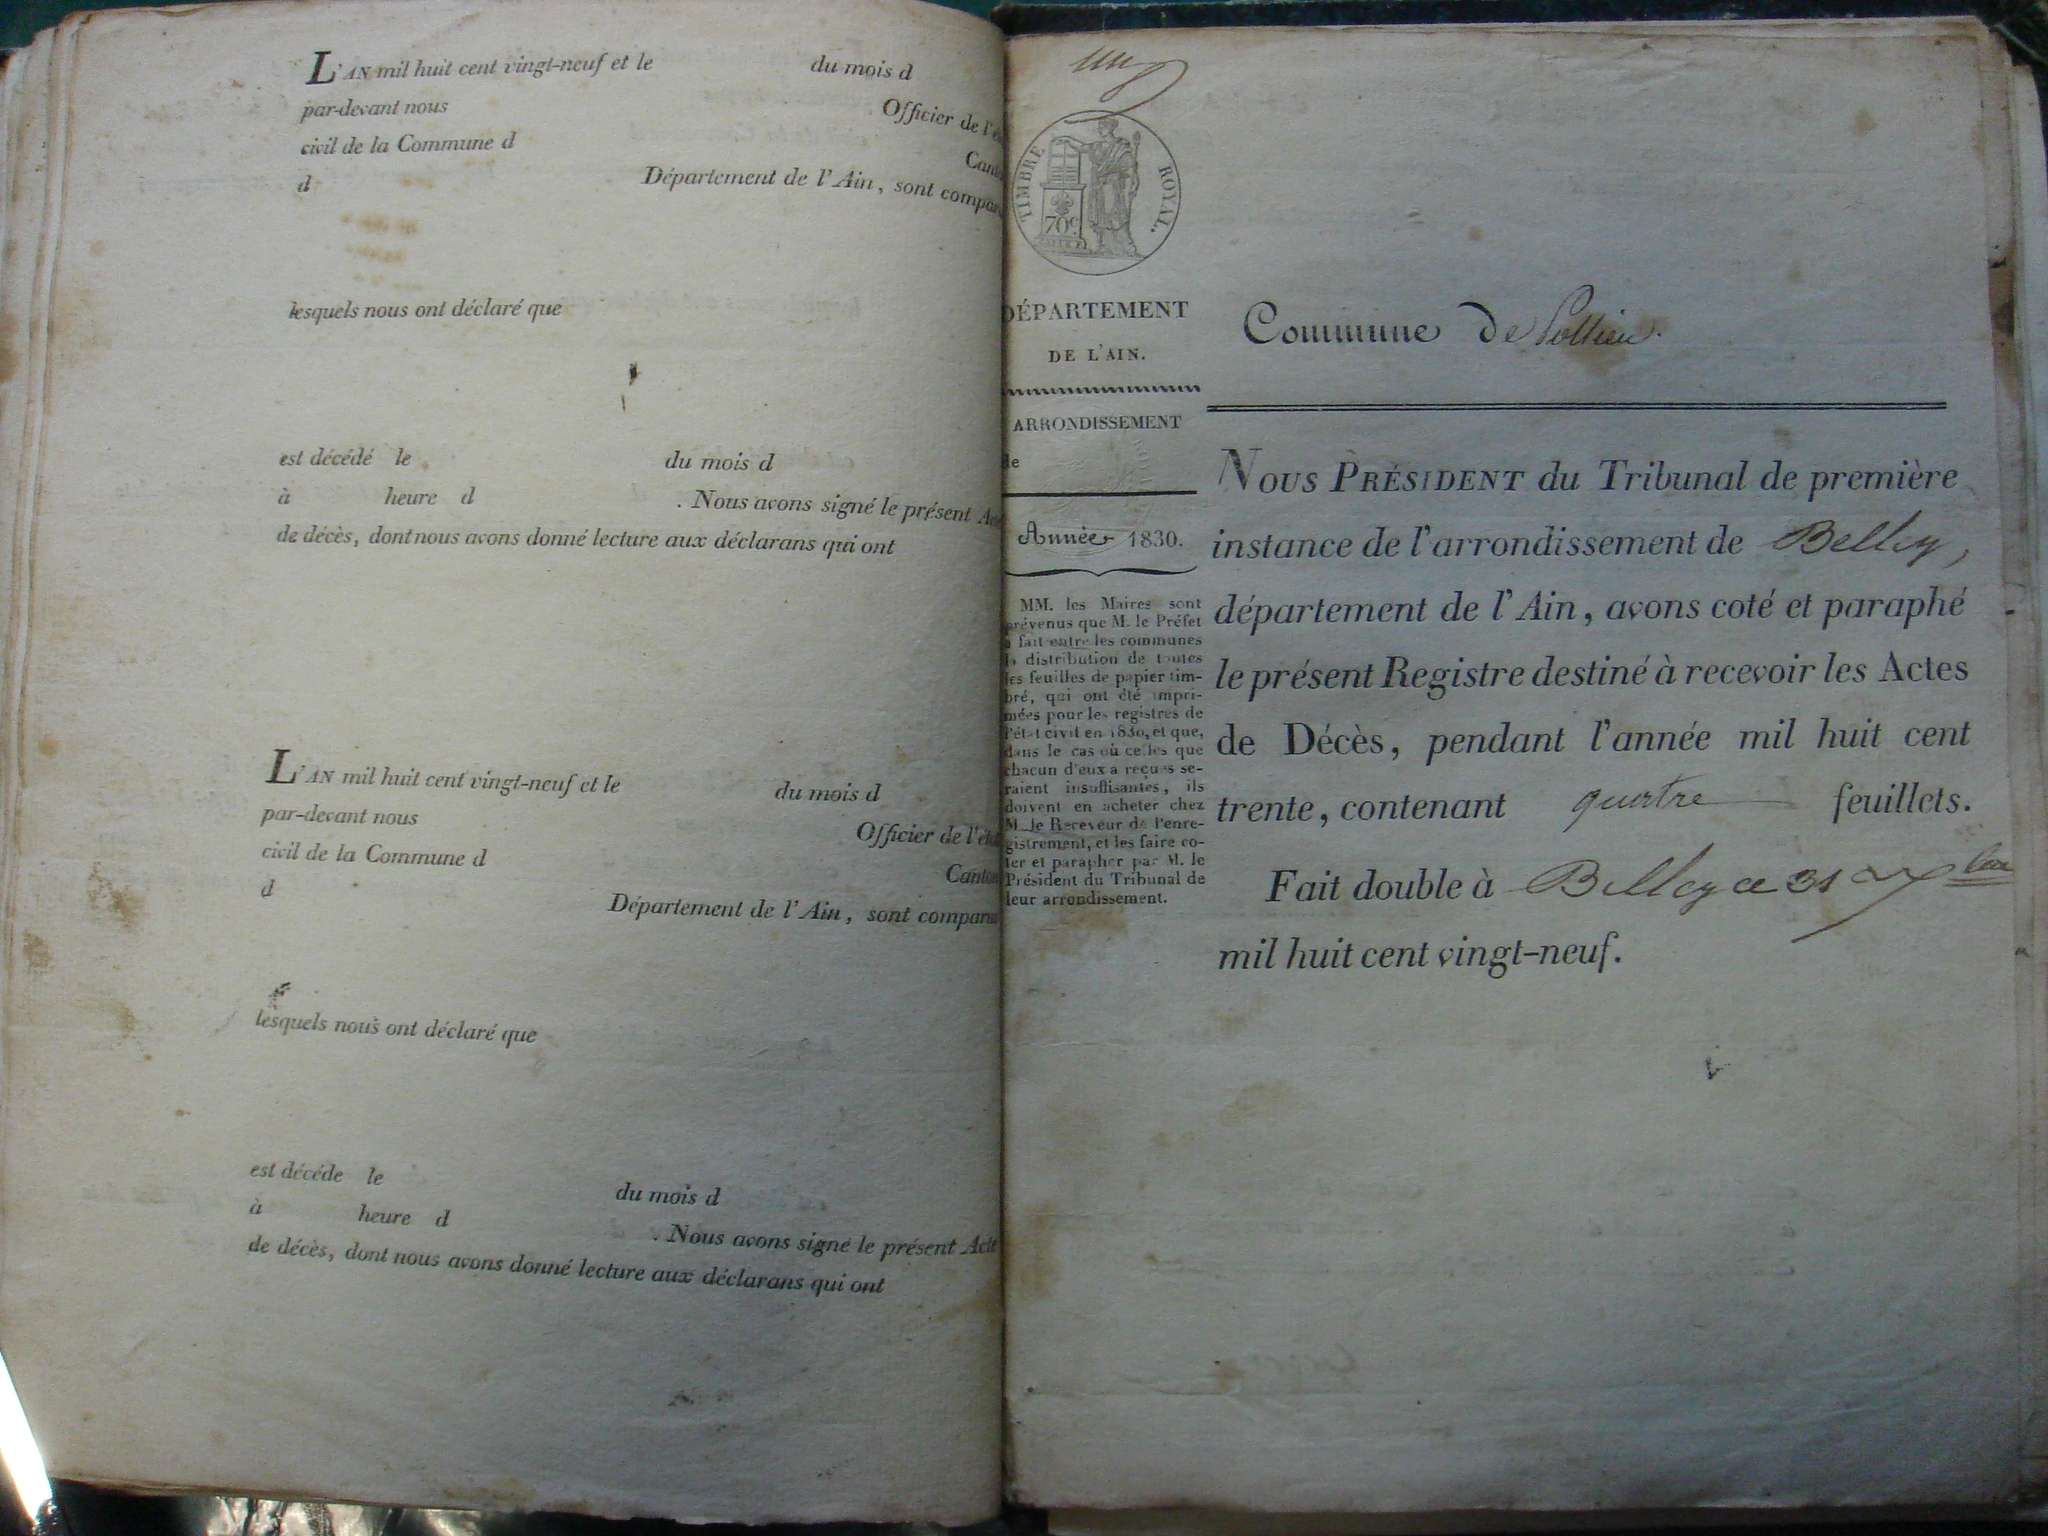 L'AN mil huit cent vingt-neuf et le du mois d
par-devant nous Officier de l'é
civil de la Commune d Cant
d Département de l'Ain, sont compar
lesquels nous ont déclaré que
est décédé le du mois d
à heure d . Nous avons signé le présent Act
de décès, dont nous avons donné lecture aux déclarans qui ont
L'AN mil huit cent vingt-neuf et le du mois d
par-devant nous Officier de l'éta
civil de la Commune d Canton
d Département de l'Ain, sont compara
lesquels nous ont déclaré que
est décéde le du mois d
à heure d . Nous avons signé le présent Acte
de décès, dont nous avons donné lecture aux déclarans qui ont
TIMBRE ROYAL.
70c.
DÉPARTEMENT
DE L'AIN.
ARRONDISSEMENT
de
Année 1830.
MM. les Maires sont
prévenus que M. le Préfet
a fait entre les communes
la distribution de toutes
les feuilles de papier tim-
bré, qui ont été impri-
mées pour les registres de
l'état civil en 1830, et que,
dans le cas où celles que
chacun d'eux a reçues se-
raient insuffisantes, ils
doivent en acheter chez
M. le Receveur de l'enre-
gistrement, et les faire co-
ter et parapher par M. le
Président du Tribunal de
leur arrondissement.
Commune de Pollieu.
NOUS PRÉSIDENT du Tribunal de première
instance de l'arrondissement de Belley,
département de l'Ain, avons coté et paraphé
le présent Registre destiné à recevoir les Actes
de Décès, pendant l'année mil huit cent
trente, contenant quatre feuillets.
Fait double à Belley ce 31 Xbre
mil huit cent vingt-neuf.